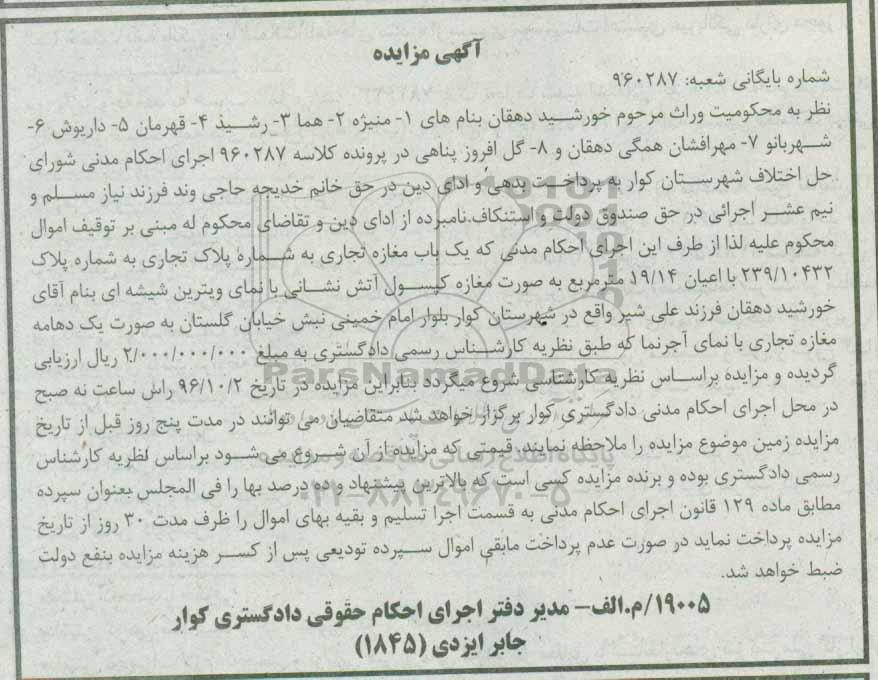 آگهی مزایده
شماره بایگانی شعبه: ۹۶۰۲۸۷
نظر به محکومیت وراث مرحوم خورشید دهقان بنام های ۱- منیژه ۲- هما ۳- رشید ۴- قهرمان ۵- داریوش ۶-
شهربانو ۷- مهرافشان همگی دهقان و ۸- گل افروز پناهی در پرونده کلاسه ۹۶۰۲۸۷ اجرای احکام مدنی شورای
حل اختلاف شهرستان کوار به پرداخت بدهی و ادای دین در حق خانم خدیجه حاجی وند فرزند نیاز مسلم و
نیم عشر اجرائی در حق صندوق دولت و استنکاف.نامبرده از ادای دین و تقاضای محکوم له مبنی بر توقیف اموال
محکوم علیه لذا از طرف این اجرای احکام مدنی که یک باب مغازه تجاری به شماره پلاک تجاری به شماره پلاک
۲۳۹/۱۰۴۳۲ با اعیان ۱۹/۱۴ مترمربع به صورت مغازه کپسول آتش نشانی با نمای ویترین شیشه ای بنام آقای
خورشید دهقان فرزند علی شیر واقع در شهرستان کوار بلوار امام خمینی نبش خیابان گلستان به صورت یک دهامه
مغازه تجاری با نمای آجرنما که طبق نظریه کارشناس رسمی دادگستری به مبلغ ۲/۰۰۰/۰۰۰/۰۰۰ ریال ارزیابی
گردیده و مزایده براساس نظریه کارشناسی شروع میگردد بنابراین مزایده در تاریخ ۹۶/۱۰/۲ راس ساعت نه صبح
در محل اجرای احکام مدنی دادگستری کوار برگزار خواهد شد متقاضیان می توانند در مدت پنج روز قبل از تاریخ
مزایده زمین موضوع مزایده را ملاحظه نمایند، قیمتی که مزایده از آن شروع می شود براساس نظریه کارشناس
رسمی دادگستری بوده و برنده مزایده کسی است که بالاترین پیشنهاد و ده درصد بها را فی المجلس بعنوان سپرده
مطابق ماده ۱۲۹ قانون اجرای احکام مدنی به قسمت اجرا تسلیم و بقیه بهای اموال را ظرف مدت ۳۰ روز از تاریخ
مزایده پرداخت نماید در صورت عدم پرداخت مابقی اموال سپرده تودیعی پس از کسر هزینه مزایده بنفع دولت
ضبط خواهد شد.
۱۹۰۰۵/م.الف- مدیر دفتر اجرای احکام حقوقی دادگستری کوار
جابر ایزدی (۱۸۴۵)
ParsNamadData
۰۲۱-۸۸۳۴۹۶۷۰-۵